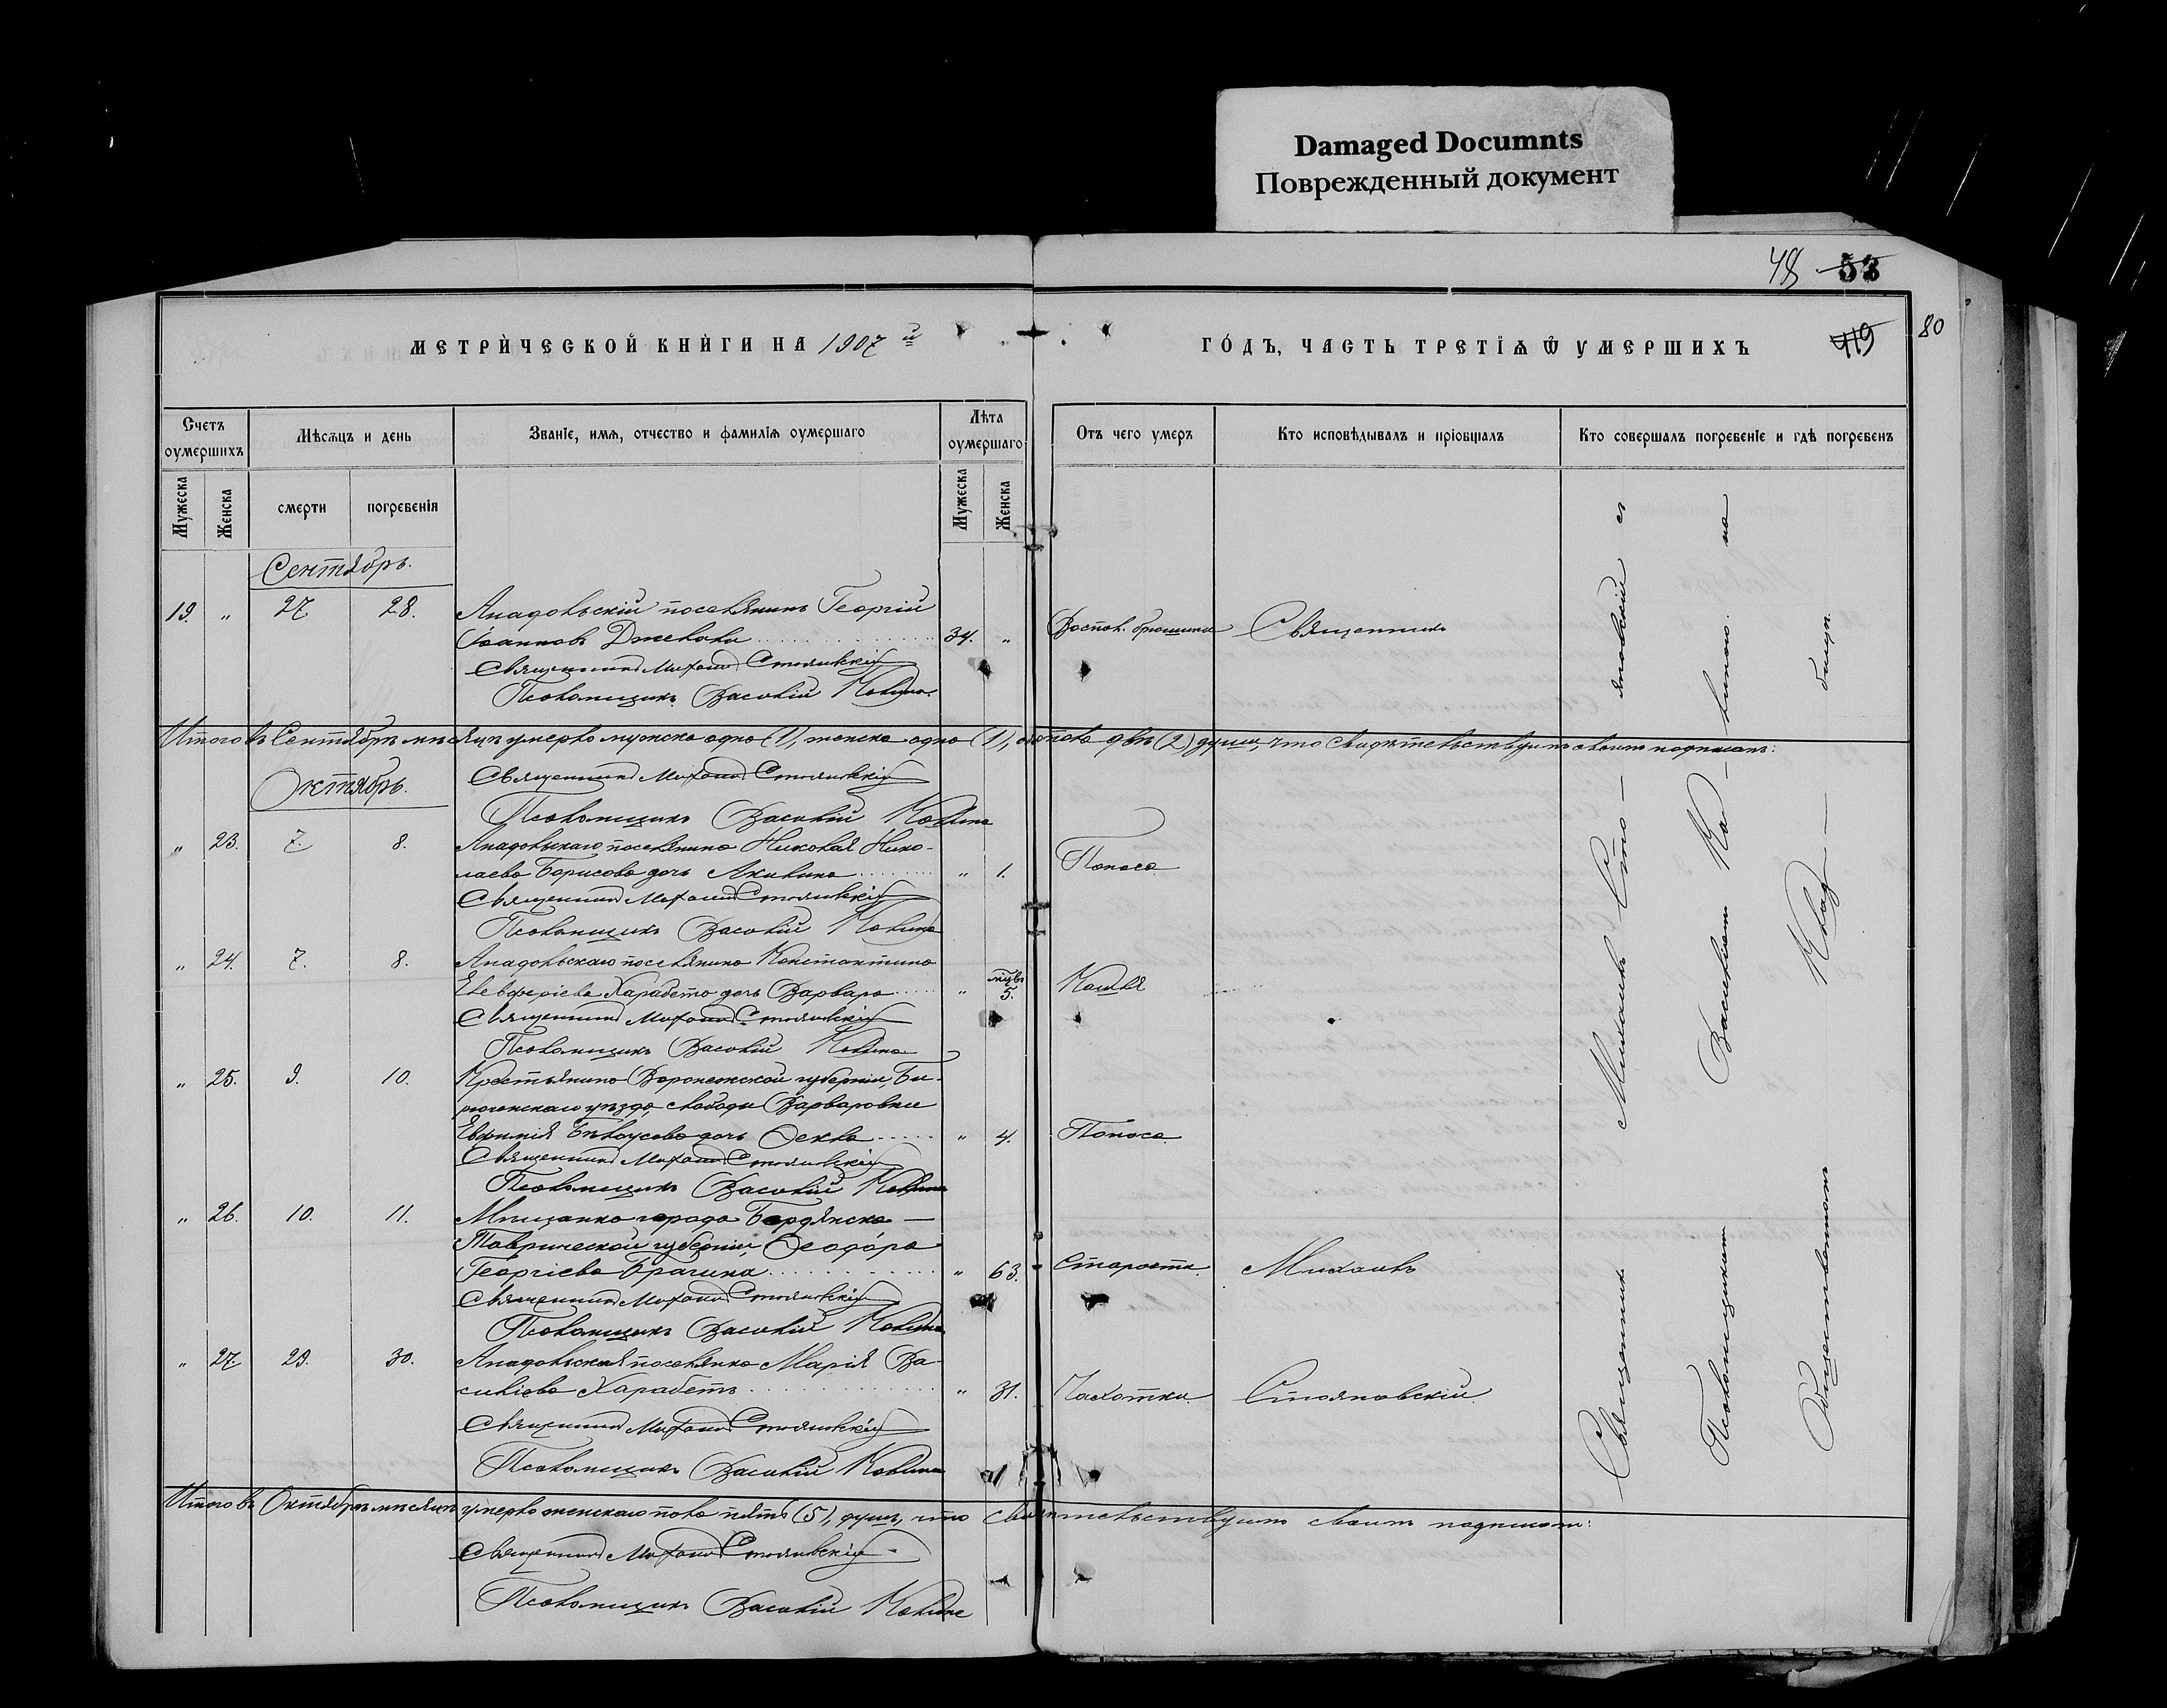 Damaged Documnts
Поврежденный документ
48 53
МЕТРИЧЕСКОЙ КНИГИ НА 1907 й
ГОДЪ, ЧАСТЬ ТРЕТІѦ Ѿ УМЕРШИХЪ
119 80
Счетъ оумершихъ
Мѣсѧцъ и день
Званіе, имѧ, отчество и фамиліѧ оумершаго
Лѣта оумершаго
Отъ чего умеръ
Кто исповѣдывалъ и пріобщалъ
Кто совершалъ погребеніе и гдѣ погребенъ
Мужеска
Женска
смерти
погребенія
Мужеска
Женска
Сентябрь.
19. " 27 28. Анадольскій поселянинъ Георгій
Іоанновъ 34. "
Воспал. брюшины Священникъ
Священникъ Михаилъ Стояновскій
Псаломщикъ Василій Калина
Итого въ Сентябрѣ мѣсяцѣ умерло мужска одна (1), женска одна (1), обоего пола двѣ (2) души, что свидѣтельствуемъ своимъ подписомъ:
Октябрь.
Священникъ Михаилъ Стояновскій
Псаломщикъ Василій Калина
" 23. 7. 8. Анадольскаго поселянина Николая Нико-
лаева Борисова дочь Акилина " 1. Поноса
Священникъ Михаилъ Стояновскій
Псаломщикъ Василій Калина
" 24. 7. 8. Анадольскаго поселянина Константина
Елевферіева Харабетъ дочь Варвара " мцвъ 5. Кашля
Священникъ Михаилъ Стояновскій
Псаломщикъ Василій Калина
" 25. 9. 10. Крестьянина Воронежской губерніи, Би-
рюченскаго уѣзда, слободы Варваровки
Евфимія Бѣлоусова дочь Ѳекла " 4. Поноса
Священникъ Михаилъ Стояновскій
Псаломщикъ Василій Калина
" 26. 10. 11. Мѣщанка города Бердянска —
Таврической губерніи, Ѳеодора
Георгіева Брагина " 63. Старости Михаилъ
Священникъ Михаилъ Стояновскій
Псаломщикъ Василій Калина
" 27. 29. 30. Анадольская поселянка Марія Ва-
силіева Харабетъ " 31. Чахотки Стояновскій.
Священникъ Михаилъ Стояновскій
Псаломщикъ Василій Калина
Итого въ Октябрѣ мѣсяцѣ умерло женскаго пола пять (5), душъ, что свидѣтельствуемъ своимъ подписомъ:
Священникъ Михаилъ Стояновскій
Псаломщикъ Василій Калина
Священникъ Михаилъ Сто— яновскій съ
Псаломщикомъ Василіемъ Ка— линою. на
Общественномъ Клад— бищѣ.